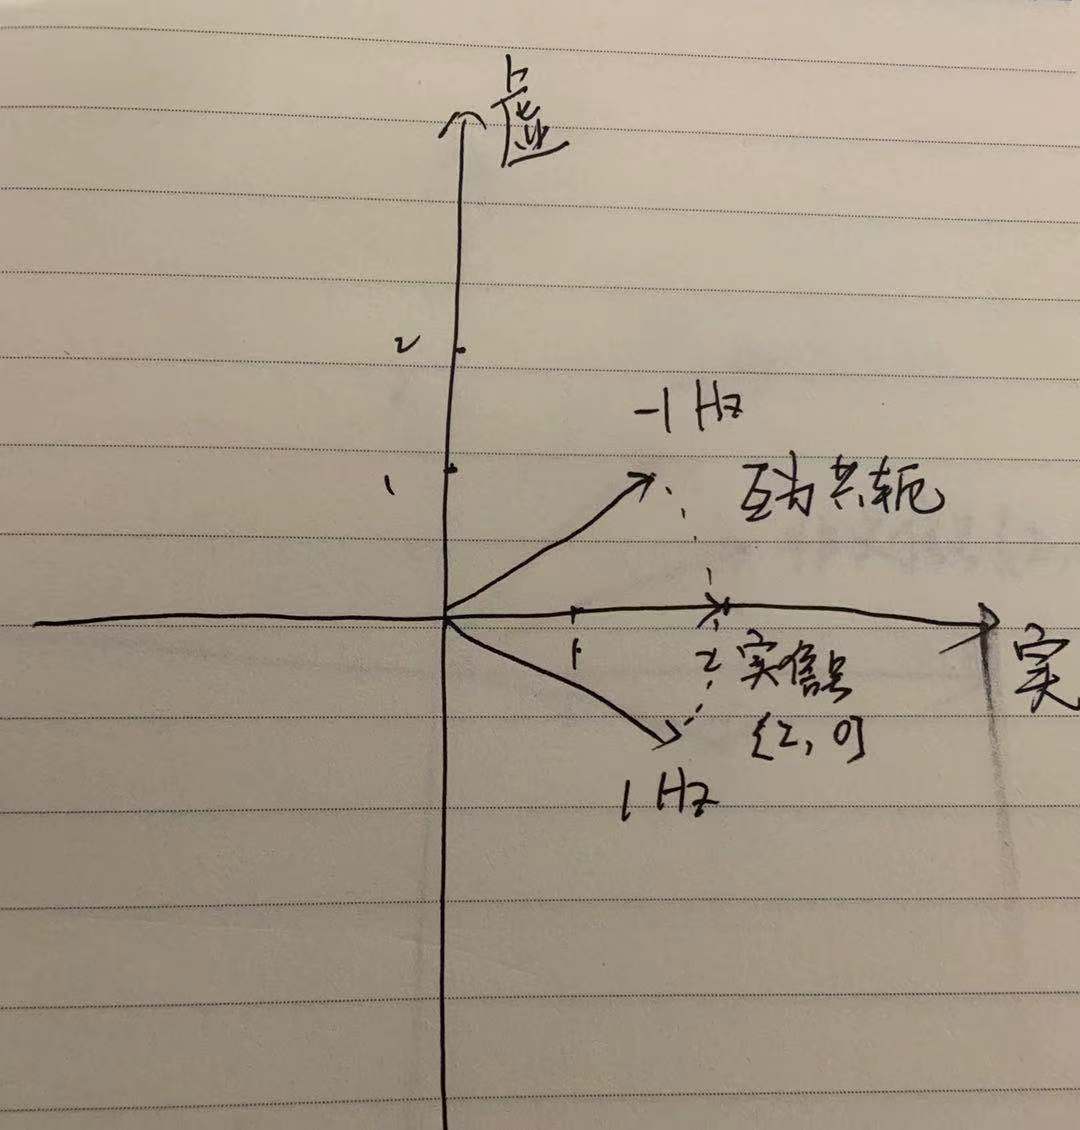 虚
2
-1 Hz
1
互为共轭
1
2 实信号
实
{2, 0}
1 Hz